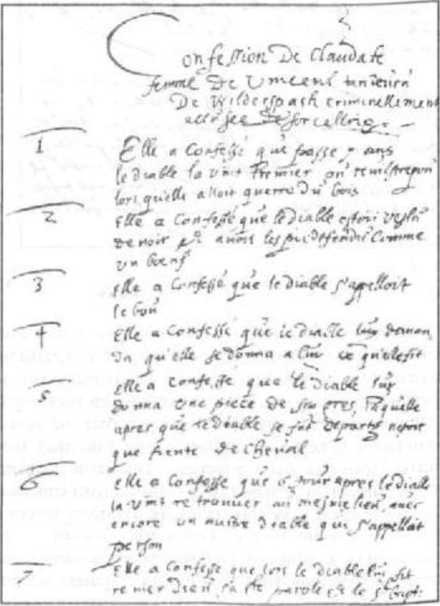 Confession De Claudate
femme De Vincent
De Wilderspach criminellement
accusee de sorcellerie
1
Elle a Confessé que passe 7 ans
le diable la vint premier
lors qu'elle alloit querre du bois
2
Elle a Confessé que le diable estoit vestu
de noir avoit les pieds fendu Comme
un boeuf
3
Elle a Confessé que le diable s'appelloit
le bon
4
Elle a Confessé que le diable luy deman
da qu'elle se donna a luy ce qu'elle fit
5
Elle a confessé que le diable luy
donna une piece de laquelle
apres que le diable se fut departy n'estoit
que fiente de Cheval
6
Elle a Confesse que 6 jour apres le diable
la vint retrouver au mesme lieu, avec
encore un aultre diable qui s'appelloit
person
7
Elle a Confesse que lors le diable luy fit
renier Dieu sa parole et le s. bapt: